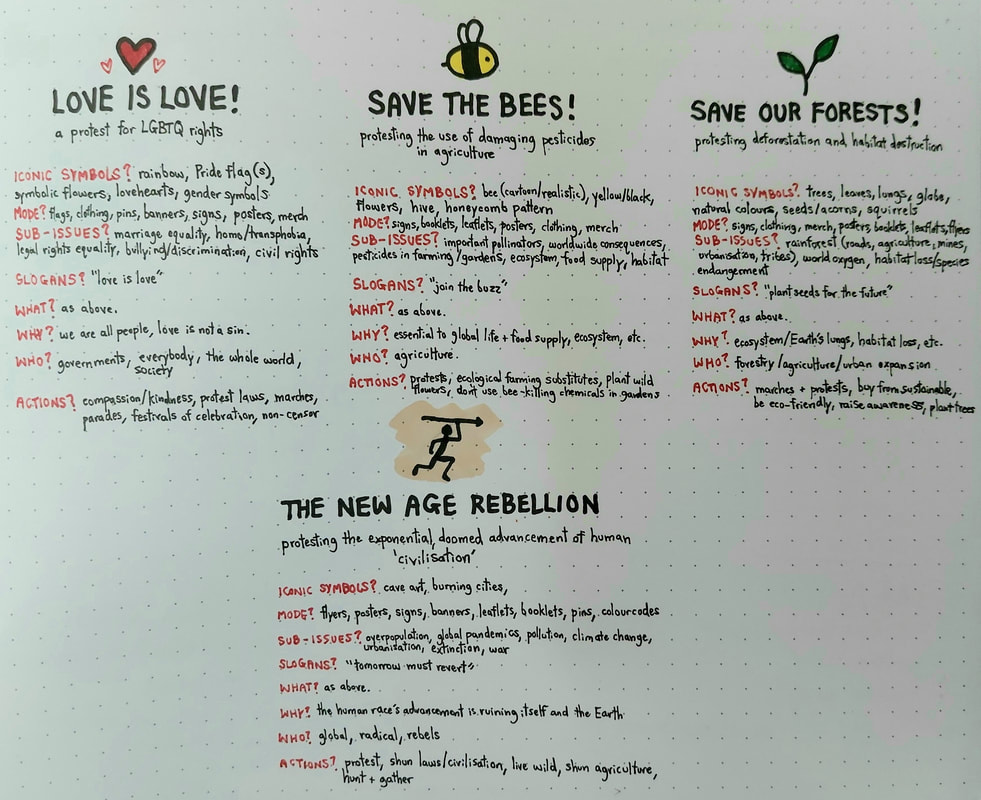 LOVE IS LOVE!
a protest for LGBTQ rights
ICONIC SYMBOLS? rainbow, Pride flag(s),
symbolic flowers, lovehearts, gender symbols
MODE? flags, clothing, pins, banners, signs, posters, merch
SUB-ISSUES? marriage equality, homo/transphobia,
legal rights equality, bullying/discrimination, civil rights
SLOGANS? "love is love"
WHAT? as above.
WHY? we are all people, love is not a sin.
WHO? governments, everybody, the whole world,
society
ACTIONS? compassion/kindness, protest laws, marches,
parades, festivals of celebration, non-censor
SAVE THE BEES!
protesting the use of damaging pesticides
in agriculture
ICONIC SYMBOLS? bee (cartoon/realistic), yellow/black,
flowers, hive, honeycomb pattern
MODE? signs, booklets, leaflets, posters, clothing, merch
SUB-ISSUES? important pollinators, worldwide consequences,
pesticides in farming/gardens, ecosystem, food supply, habitat
SLOGANS? "join the buzz"
WHAT? as above.
WHY? essential to global life + food supply, ecosystem, etc.
WHO? agriculture.
ACTIONS? protests, ecological farming substitutes, plant wild
flowers, don't use bee-killing chemicals in gardens
SAVE OUR FORESTS!
protesting deforestation and habitat destruction
ICONIC SYMBOLS? trees, leaves, lungs, globe,
natural colours, seeds/acorns, squirrels
MODE? signs, clothing, merch, posters, booklets, leaflets, flyers
SUB-ISSUES? rainforest (roads, agriculture, mines,
urbanisation, tribes), world oxygen, habitat loss/species
endangerment
SLOGANS? "plant seeds for the future"
WHAT? as above.
WHY? ecosystem/Earth's lungs, habitat loss, etc.
WHO? forestry/agriculture/urban expansion
ACTIONS? marches + protests, buy from sustainable,
be eco-friendly, raise awareness, plant trees
THE NEW AGE REBELLION
protesting the exponential, doomed advancement of human
'civilisation'
ICONIC SYMBOLS? cave art, burning cities,
MODE? flyers, posters, signs, banners, leaflets, booklets, pins, colourcodes
SUB-ISSUES? overpopulation, global pandemics, pollution, climate change,
urbanisation, extinction, war
SLOGANS? "tomorrow must revert"
WHAT? as above.
WHY? the human race's advancement is ruining itself and the Earth
WHO? global, radical, rebels
ACTIONS? protest, shun laws/civilisation, live wild, shun agriculture,
hunt + gather